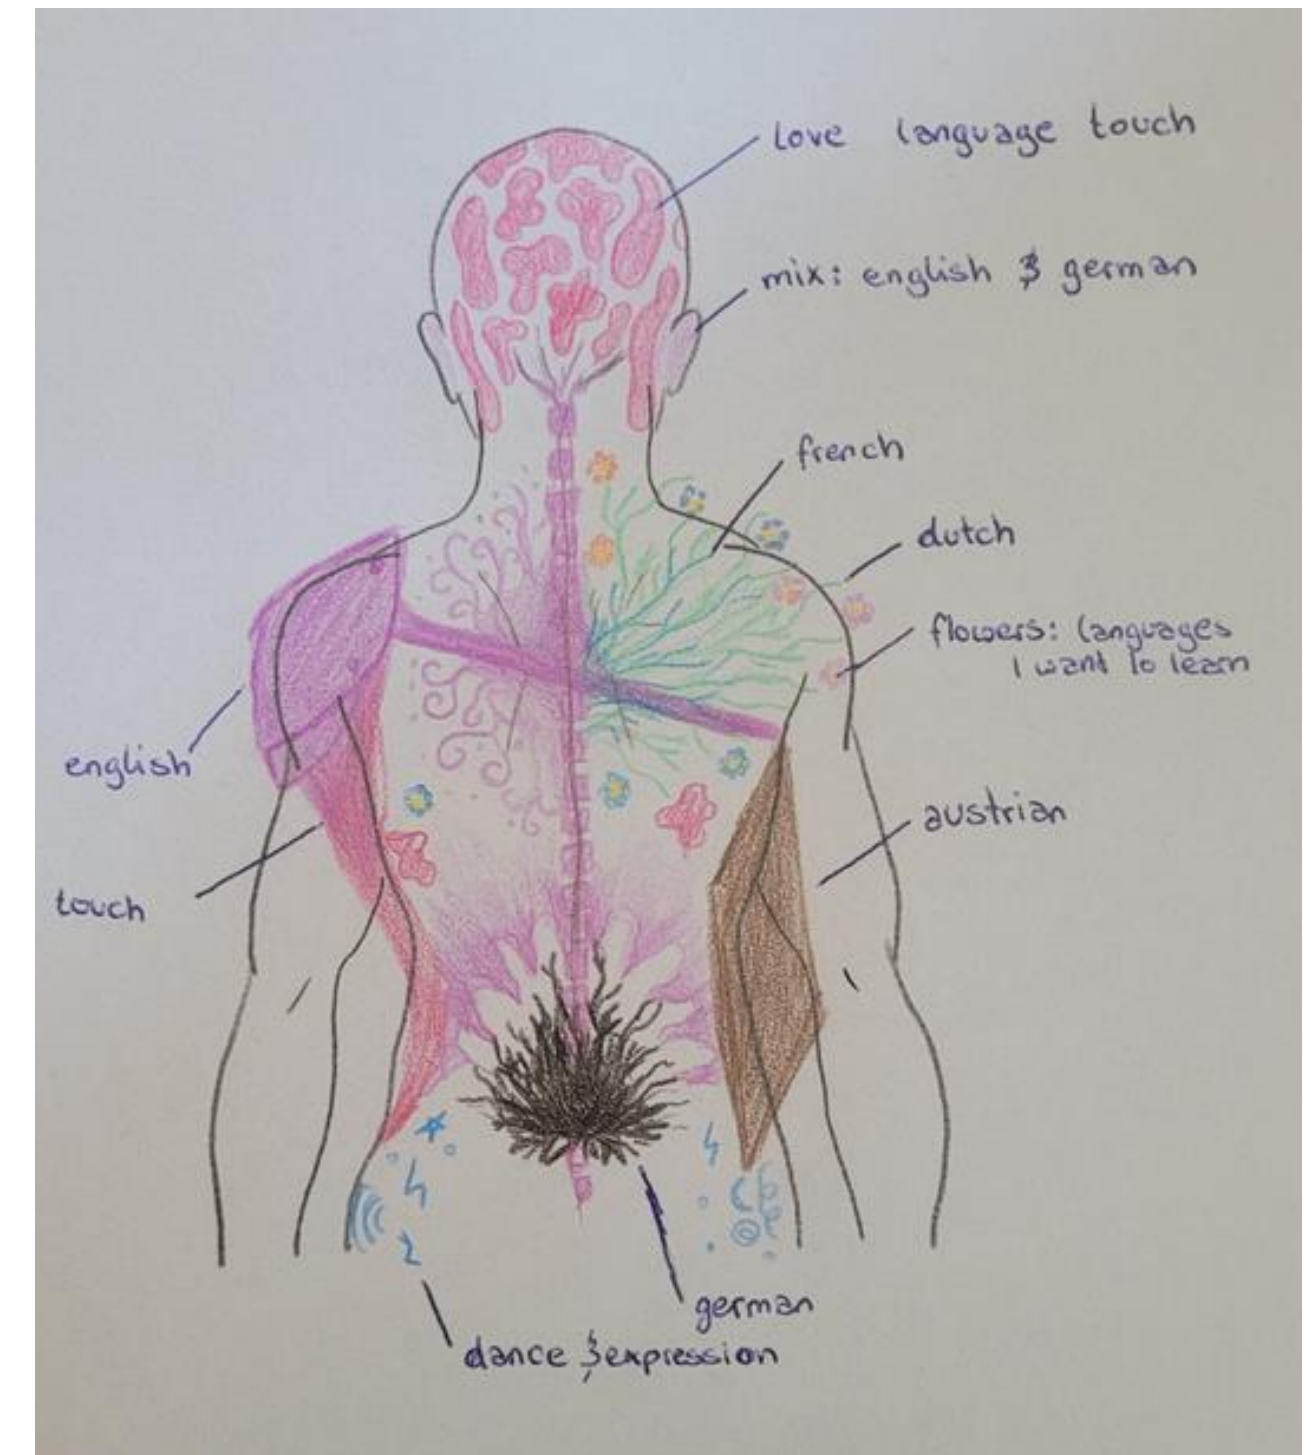 love language touch
mix: english & german
french
dutch
flowers: languages
I want to learn
english
austrian
touch
german
dance & expression